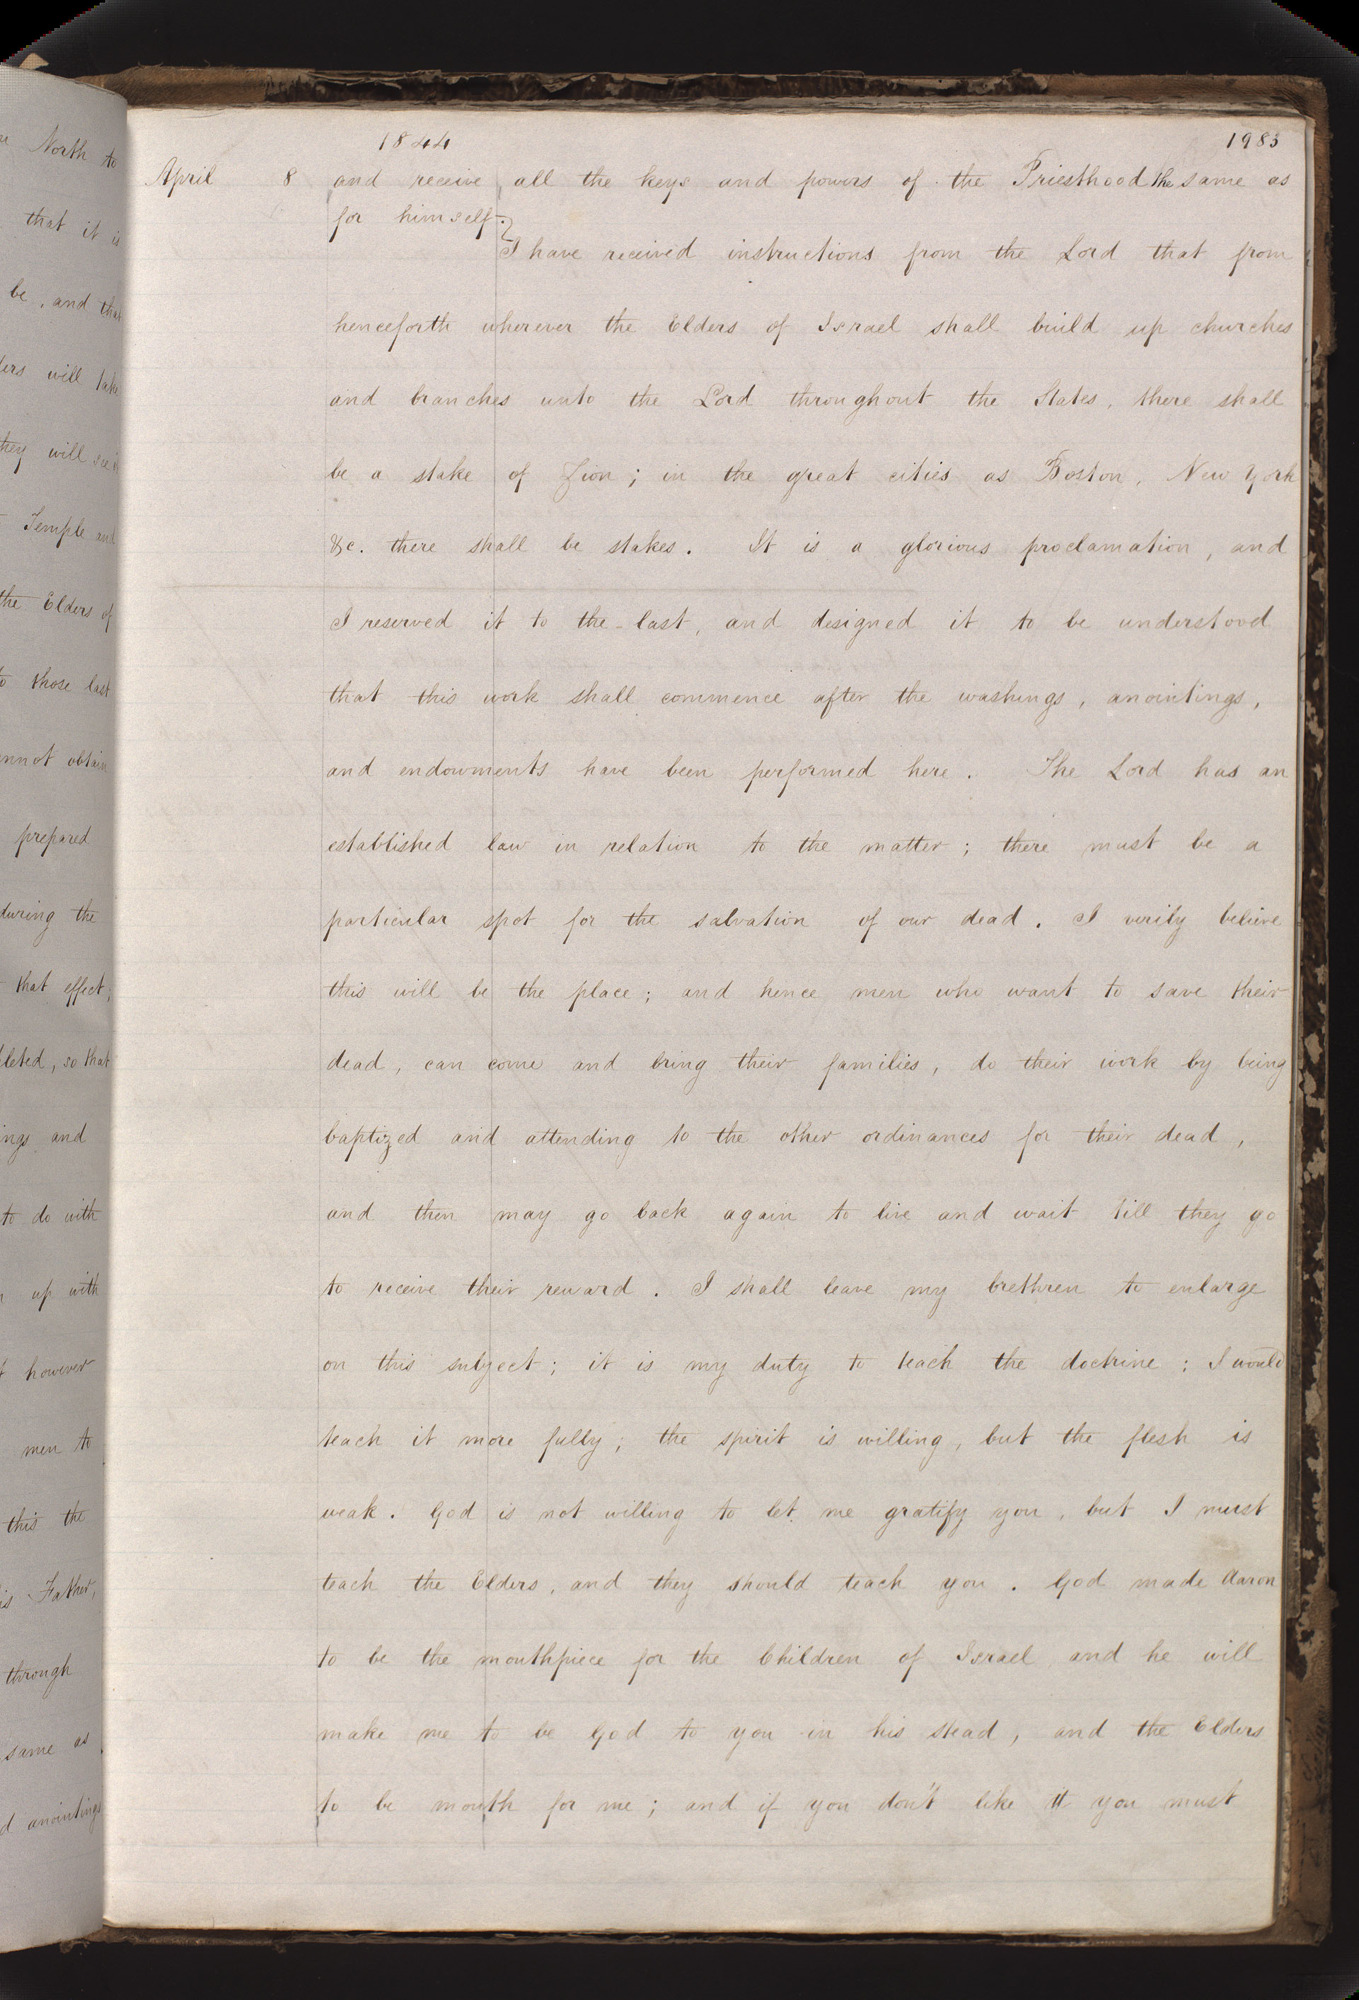 1844 1983
April 8 and receive all the keys and powers of the Priesthood the same as
for himself.
I have received instructions from the Lord that from
henceforth wherever the Elders of Israel shall build up churches
and branches unto the Lord throughout the States, there shall
be a stake of Zion; in the great cities as Boston, New York
&c. there shall be stakes. It is a glorious proclamation, and
I reserved it to the last, and designed it to be understood
that this work shall commence after the washings, anointings,
and endowments have been performed here. The Lord has an
established law in relation to the matter; there must be a
particular spot for the salvation of our dead. I verily believe
this will be the place; and hence men who want to save their
dead, can come and bring their families, do their work by being
baptized and attending to the other ordinances for their dead,
and then may go back again to live and wait till they go
to receive their reward. I shall leave my brethren to enlarge
on this subject; it is my duty to teach the doctrine; I would
teach it more fully; the spirit is willing, but the flesh is
weak. God is not willing to let me gratify you, but I must
teach the Elders, and they should teach you. God made Aaron
to be the mouthpiece for the Children of Israel, and he will
make me to be God to you in his stead, and the Elders
to be mouth for me; and if you don't like it you must
North to
that it is
be, and that
will take
they will
Temple and
the Elders of
those last
obtain
prepared
during the
that effect;
so that
and
to do with
up with
however
men to
this the
Father,
through
same as
anointings